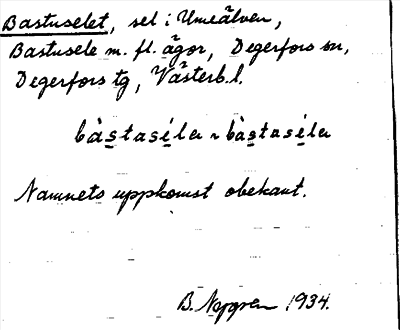 Bastuselet, sel i Umeälven,
Bastusele m. fl. ägor, Degerfors sn,
Degerfors tg, Västerb. l.
bàstaséla ~ bàstaséla
Namnets uppkomst obekant.
B. Nygren 1934.